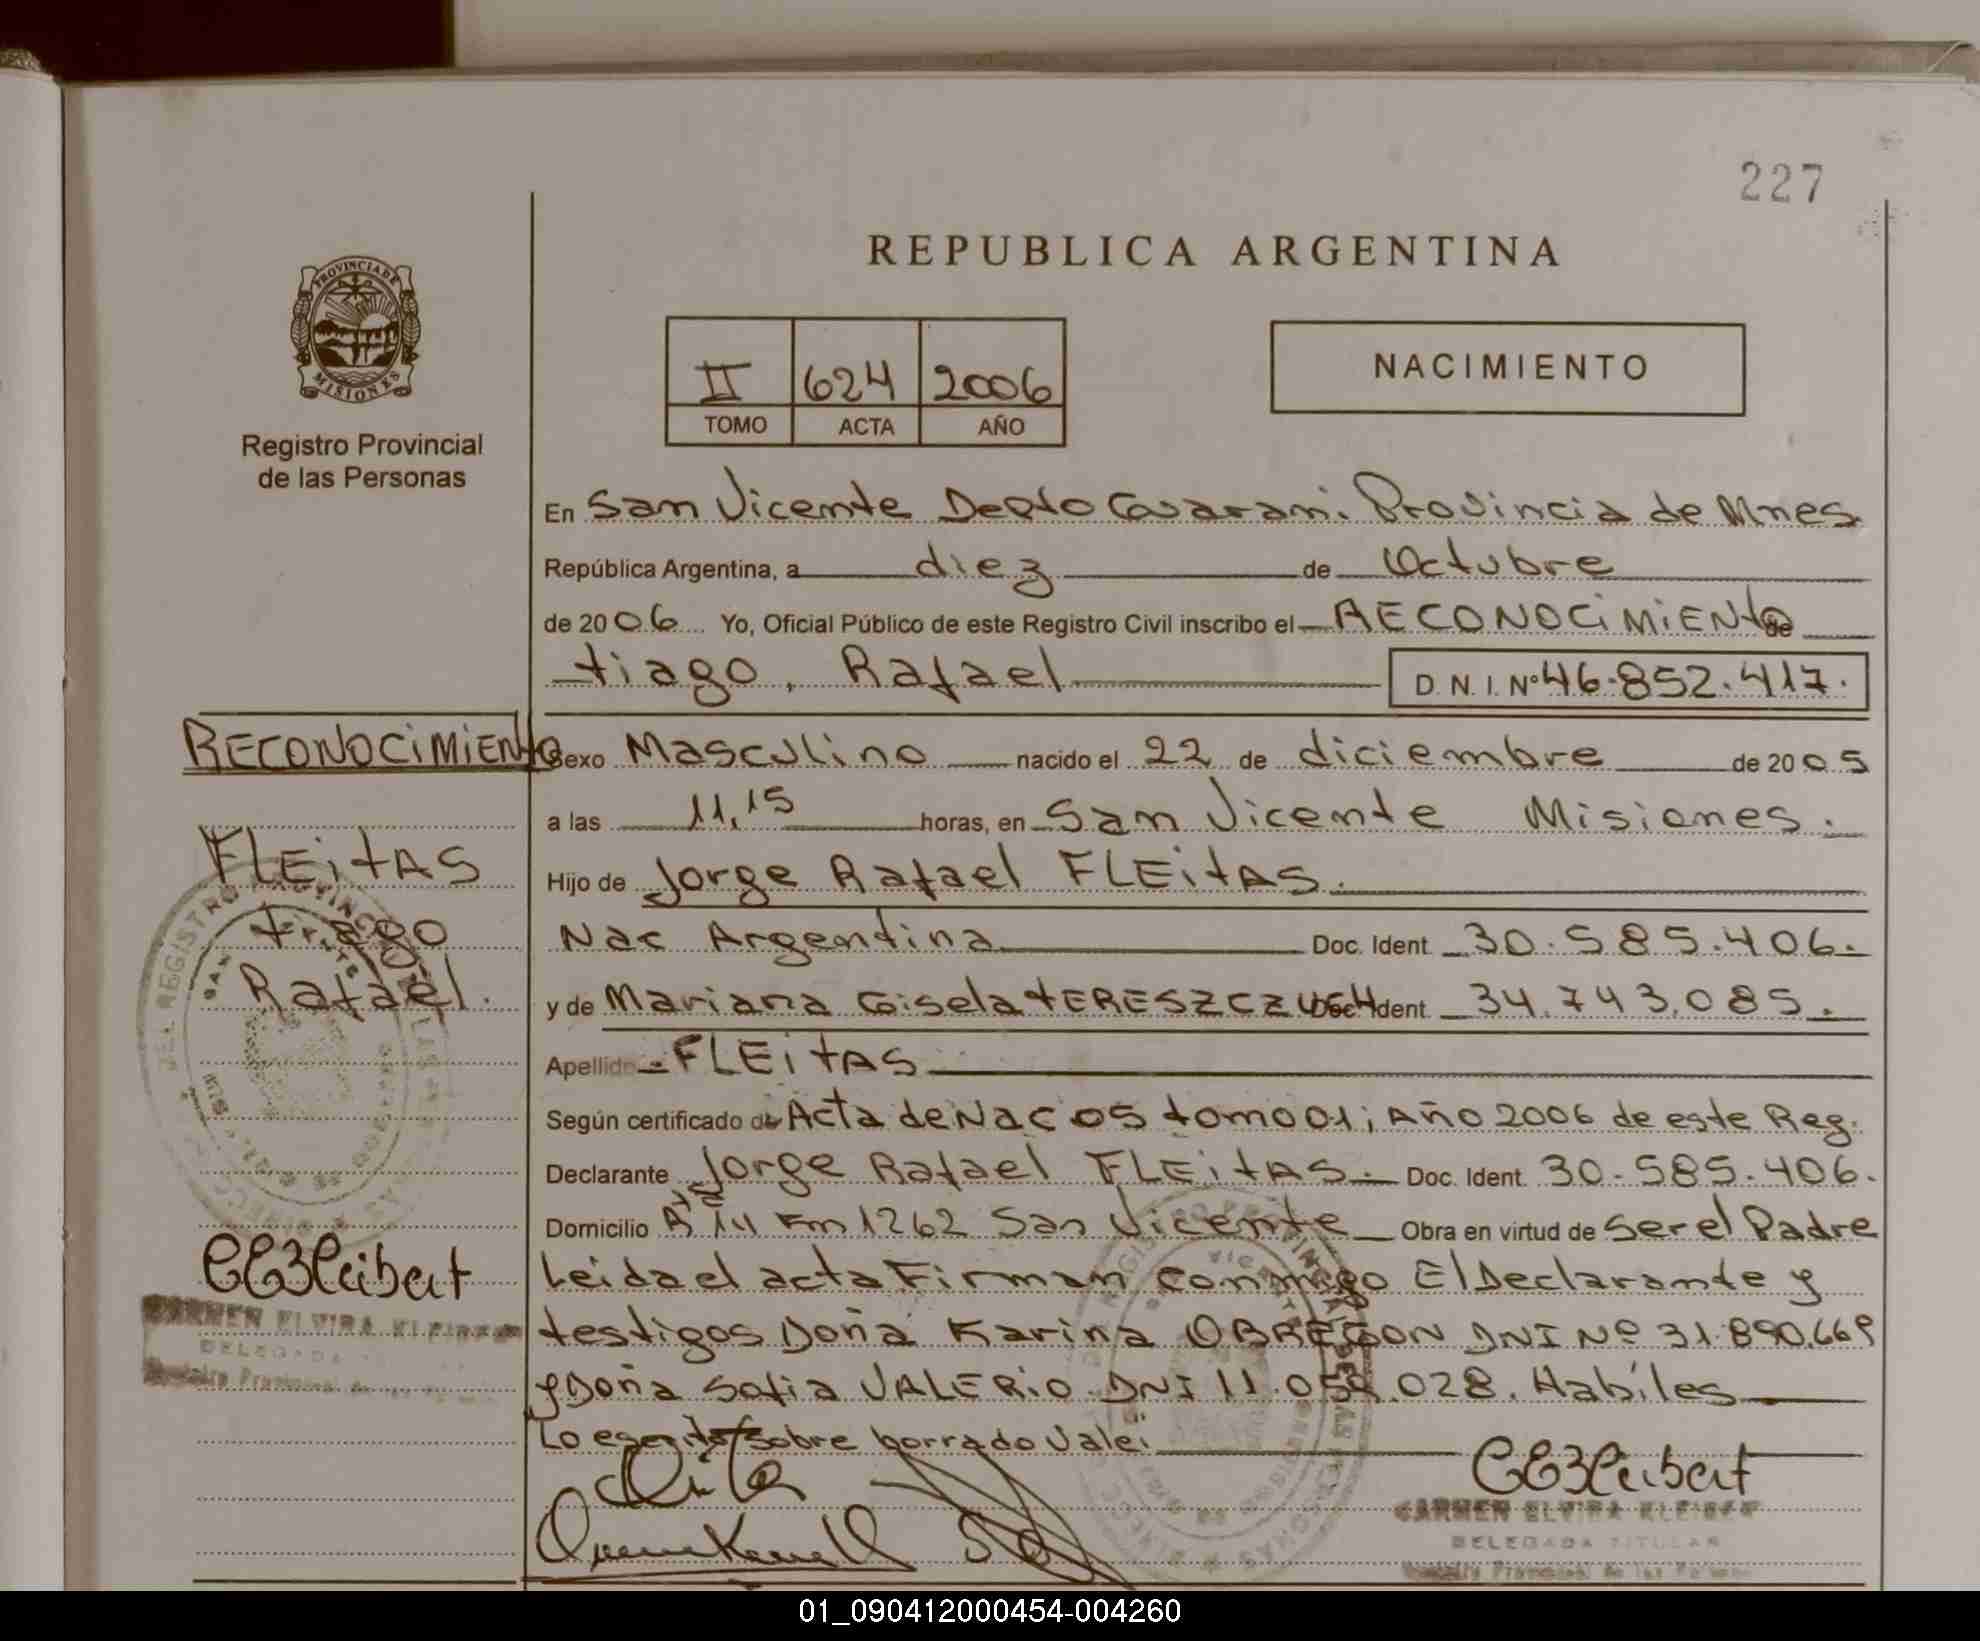 227
REPUBLICA ARGENTINA
PROVINCIA DE
MISIONES
Registro Provincial
de las Personas
II 624 2006
TOMO ACTA AÑO
NACIMIENTO
En San Vicente Depto Guarani. Provincia de Mnes
República Argentina, a diez de Octubre
de 2006 Yo, Oficial Público de este Registro Civil inscribo el RECONOCIMIENTO de
tiago, Rafael D.N.I. Nº 46.852.417.
RECONOCIMIENTO
FLEITAS
tiago
Rafael.
Sexo Masculino nacido el 22 de diciembre de 2005
a las 11,15 horas, en San Vicente Misiones.
Hijo de Jorge Rafael FLEITAS.
Nac Argentina Doc. Ident. 30.585.406.
y de Mariana Gisela TERESZCZUCH Doc. Ident. 34.743.085.
Apellido FLEITAS
Según certificado de Acta de Nac 05 tomo 01; Año 2006 de este Reg.
Declarante Jorge Rafael FLEITAS. Doc. Ident. 30.585.406.
Domicilio Km 1262 San Vicente Obra en virtud de Ser el Padre
Leida el acta Firman conmigo El Declarante y
testigos Doña Karina OBREGON DNI Nº 31.890.669
y Doña Sofia VALERIO DNI 11.059.028. Habiles
Lo escrito sobre borrado Vale:
CARMEN ELVIRA
DELEGADA
CARMEN ELVIRA
DELEGADA TITULAR
01_090412000454-004260